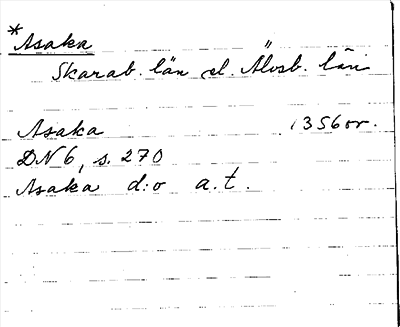 *Asaka
Skarab. län el. Älvsb. län
Asaka 1356 or.
DN 6, s. 270
Asaka d:o a.t.